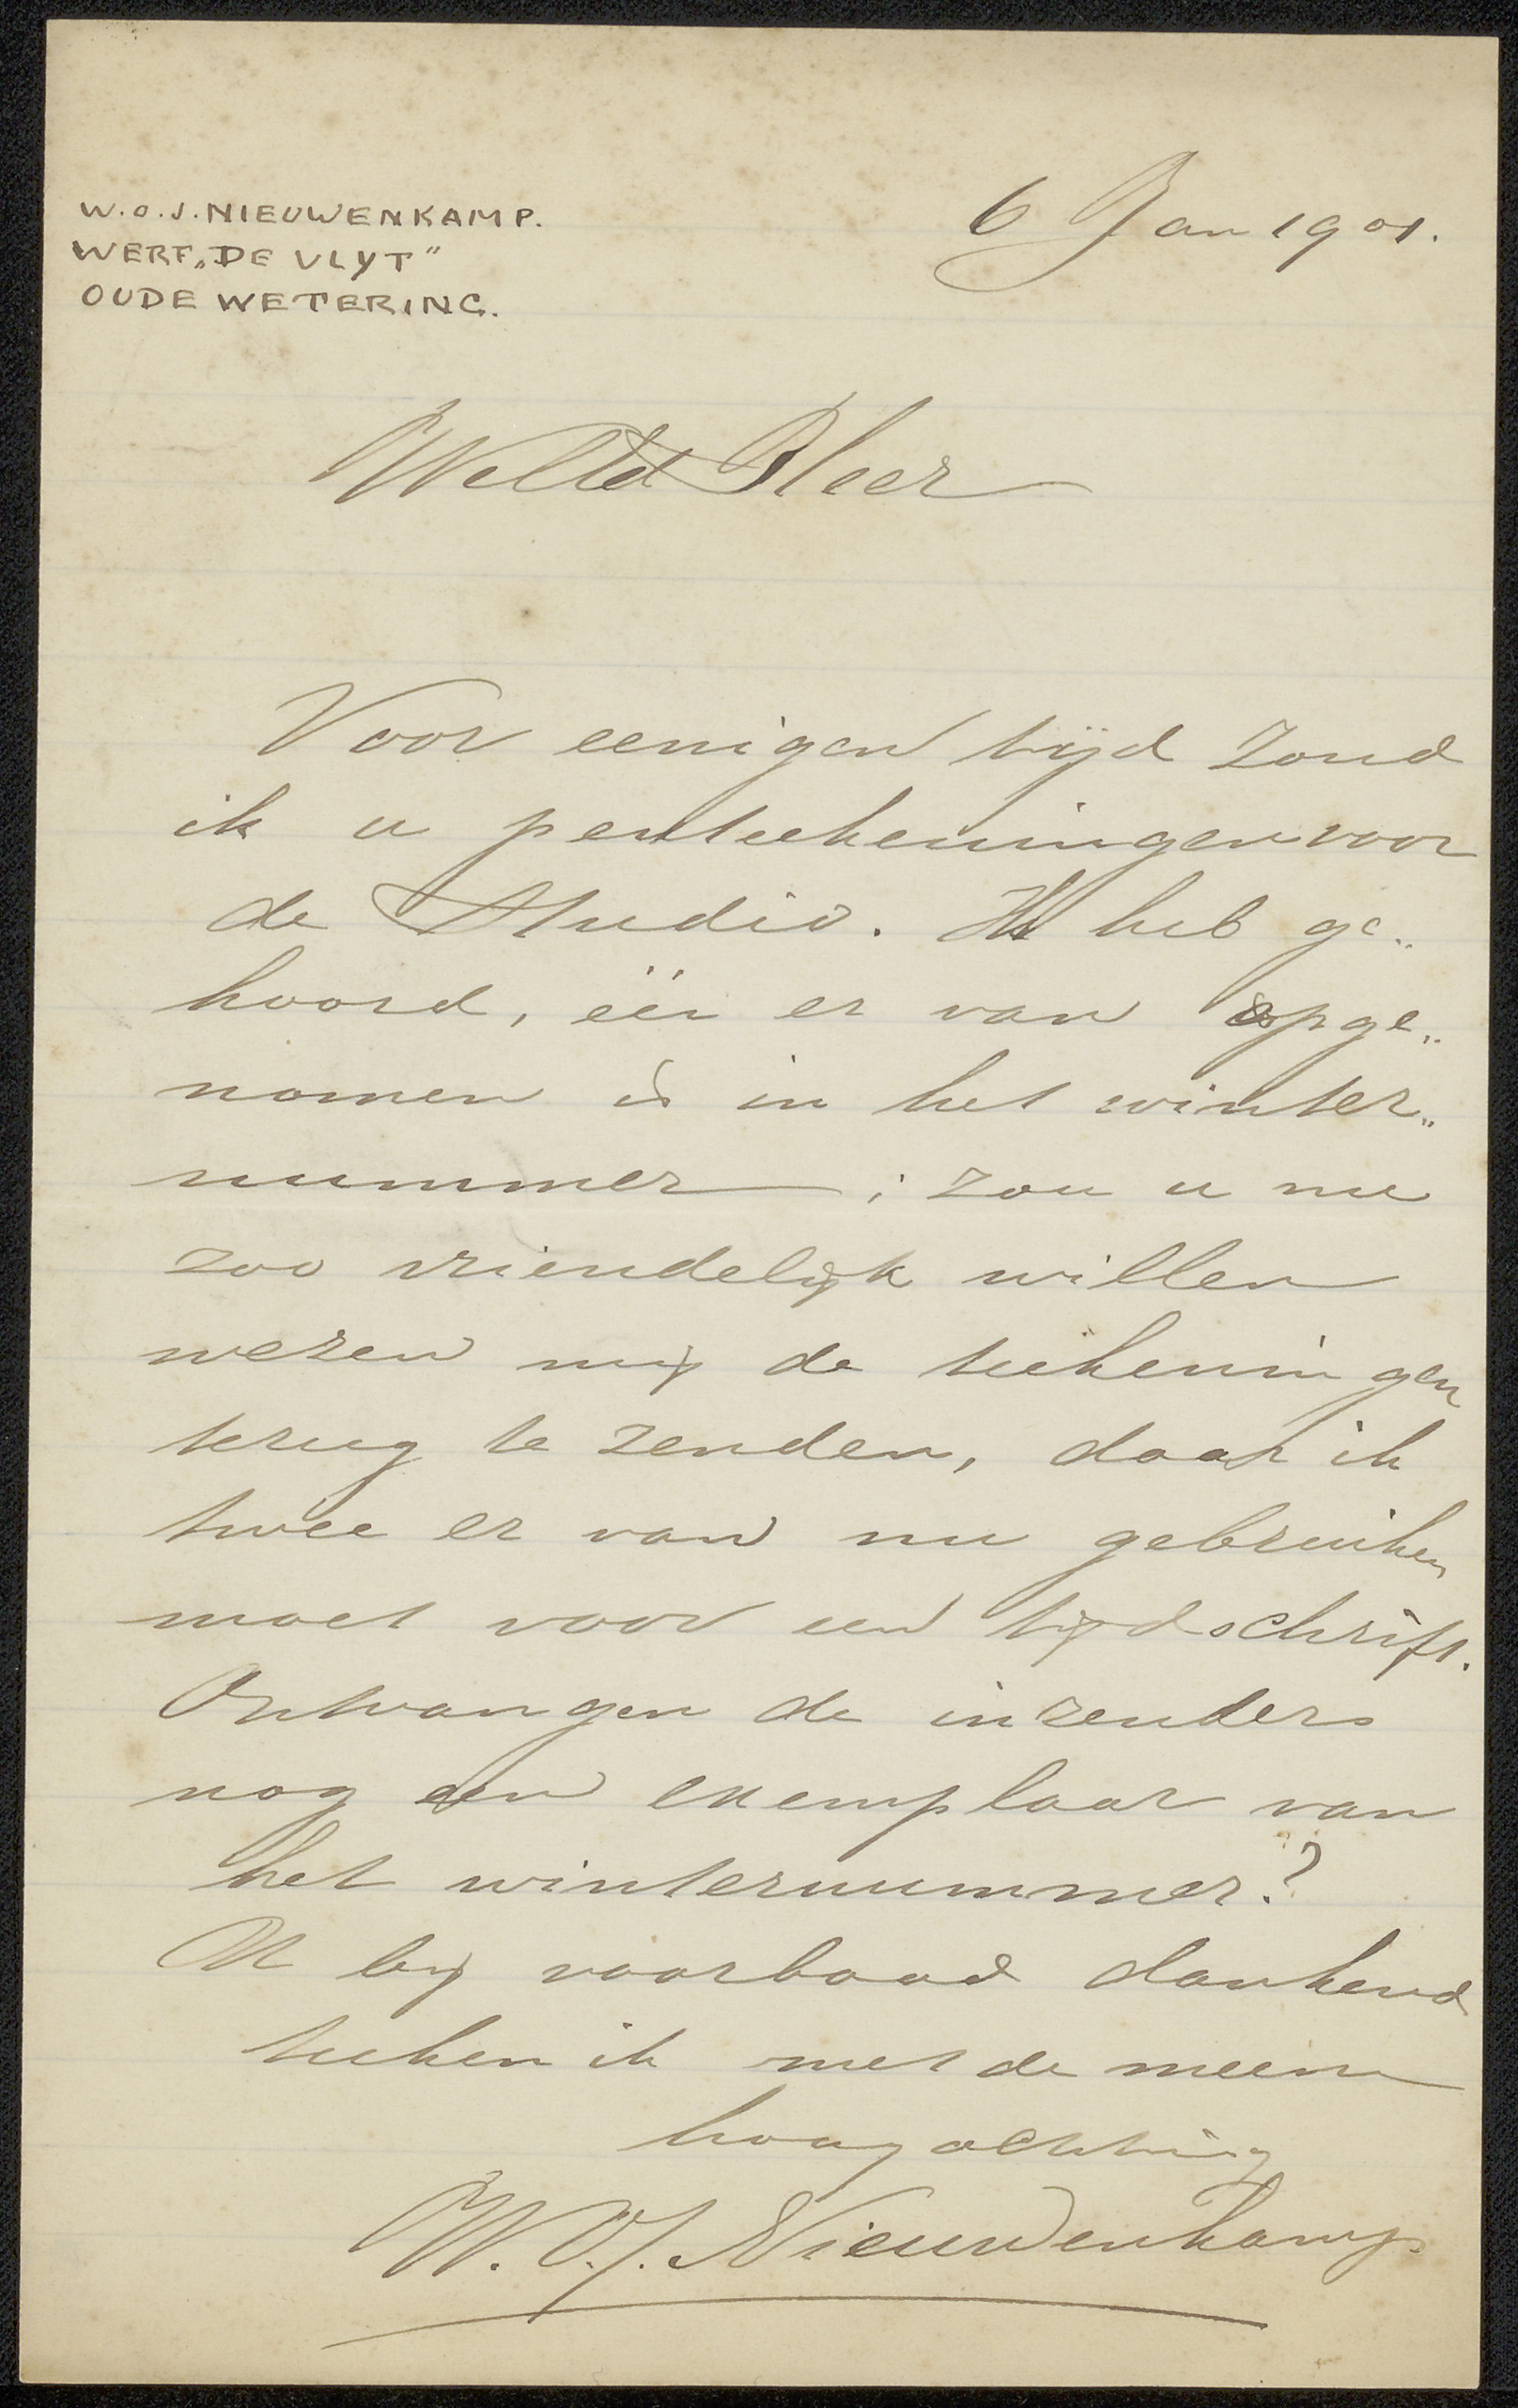 W.O.J. NIEUWENKAMP.
WERF „DE VLYT"
OUDE WETERING.
6 Jan 1901.
WelEd Heer
Voor eenigen tijd zond
ik u penteekeningen voor
de Studio. Ik heb ge„
hoord, één er van opge„
nomen is in het winter„
nummer ; zou u nu
zoo vriendelijk willen
wezen mij de teekeningen
terug te zenden, daar ik
twee er van nu gebruiken
moet voor een tijdschrift.
Ontvangen de inzenders
nog een exemplaar van
het winternummer?
U bij voorbaad dankend
teeken ik met de meeste
hoogachting
W.O.J. Nieuwenkamp.